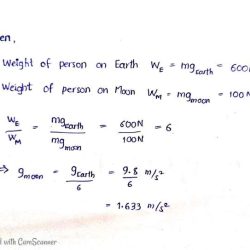 en,
Weight of person on Earth W_E = mg_Earth = 600N
Weight of person on Moon W_M = mg_moon = 100N
W_E / W_M = mg_Earth / mg_moon = 600N / 100N = 6
⇒ g_moon = g_Earth / 6 = 9.8 / 6 m/s²
= 1.633 m/s²
d with CamScanner